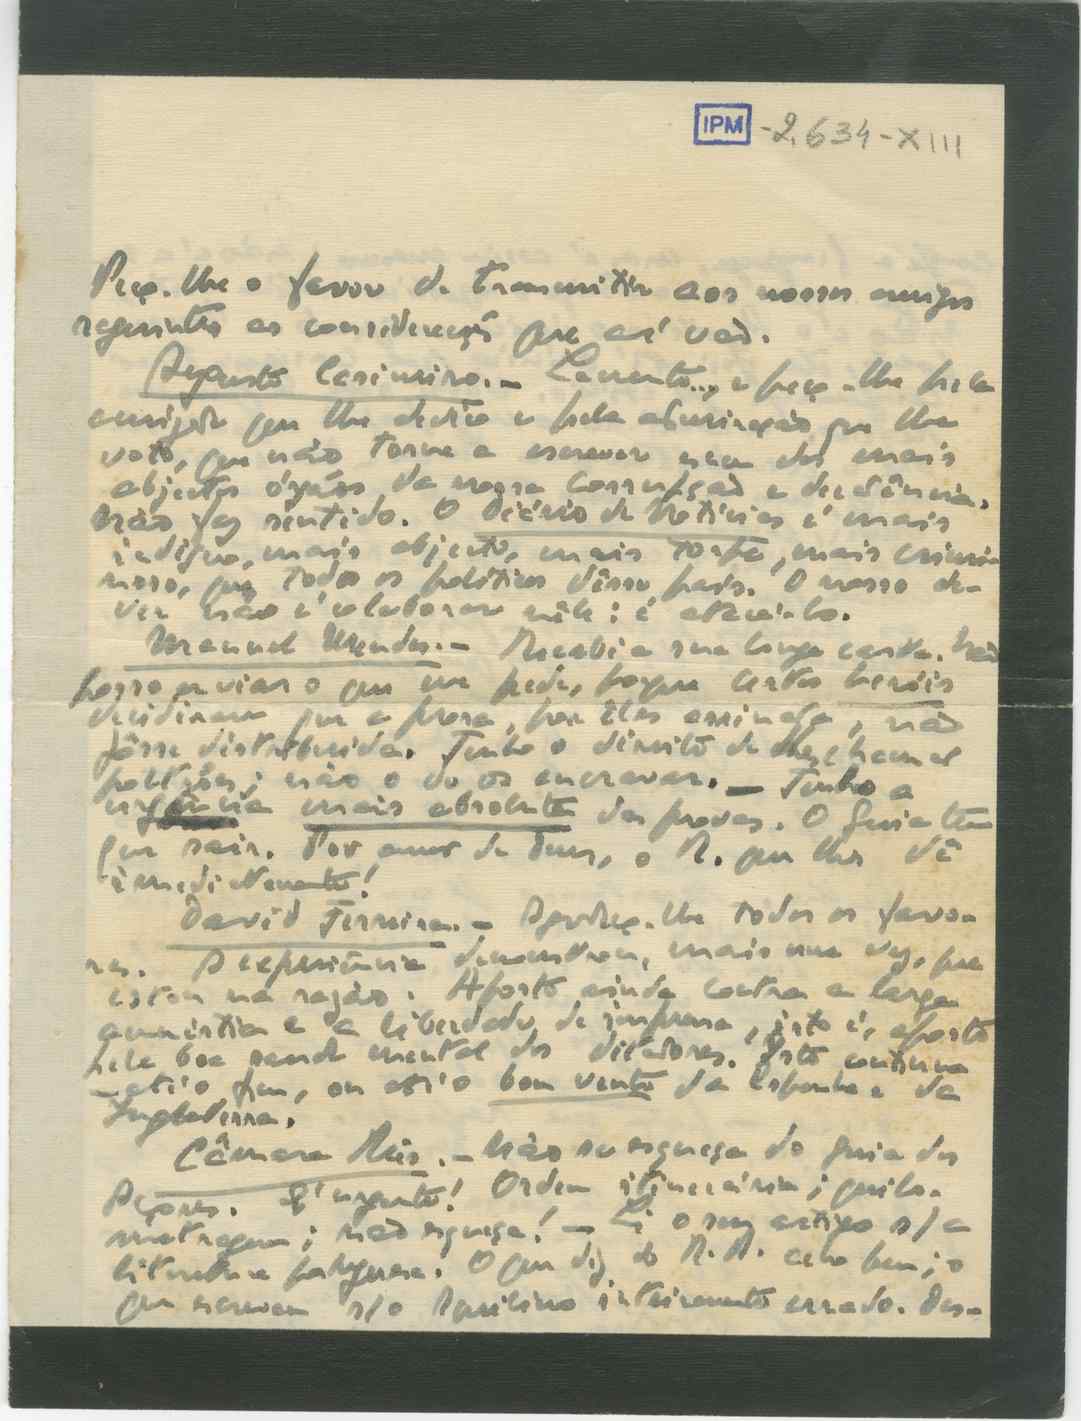 IPM -2.634-XIII
Peço-lhe o favor de transmitir aos nossos amigos
seguintes as considerações que aí vão.
Augusto Casimiro. - Lamento... e peço-lhe pela
amizade que lhe devoto e pela admiração que lhe
voto, que não torne a escrever num dos mais
abjectos órgãos da nossa corrupção e decadência.
Não faz sentido. O Diário de Notícias é mais
indigno, mais abjecto, mais torpe, mais crimi-
noso, que todos os políticos dêsse país. O nosso de-
ver não é colaborar nele: é atacá-lo.
Manuel Mendes. - Recebi a sua longa carta. Não
posso enviar o que me pede, porque certos heróis
decidiram que a prosa, por êles assinada, não
fôsse distribuída. Tenho o direito de lhes chamar
poltrões; não o de os encravar. - Tenho a
urgência mais absoluta das provas. O Guia tem
que sair. Por amor de Deus, o R. que lhas dê
imediatamente!
David Ferreira. - Agradeço-lhe todos os favo-
res. A experiência demonstrou, mais uma vez, que
estou na razão. Aposto ainda contra a larga
amnistia e a liberdade de imprensa, isto é, aposto
pela boa saúde mental dos ditadores. Isto continua
até o fim, ou até o bom vento da Espanha e da
Inglaterra.
Câmara Reis. - Não se esqueça do guia dos
Açores. É urgente! Ordem itinerária; quilo-
metragem; não esqueça! - Li o seu artigo s/ a
literatura portuguesa. O que diz do R. B. acho bem; o
que escreveu s/ o Aquilino inteiramente errado. Des-